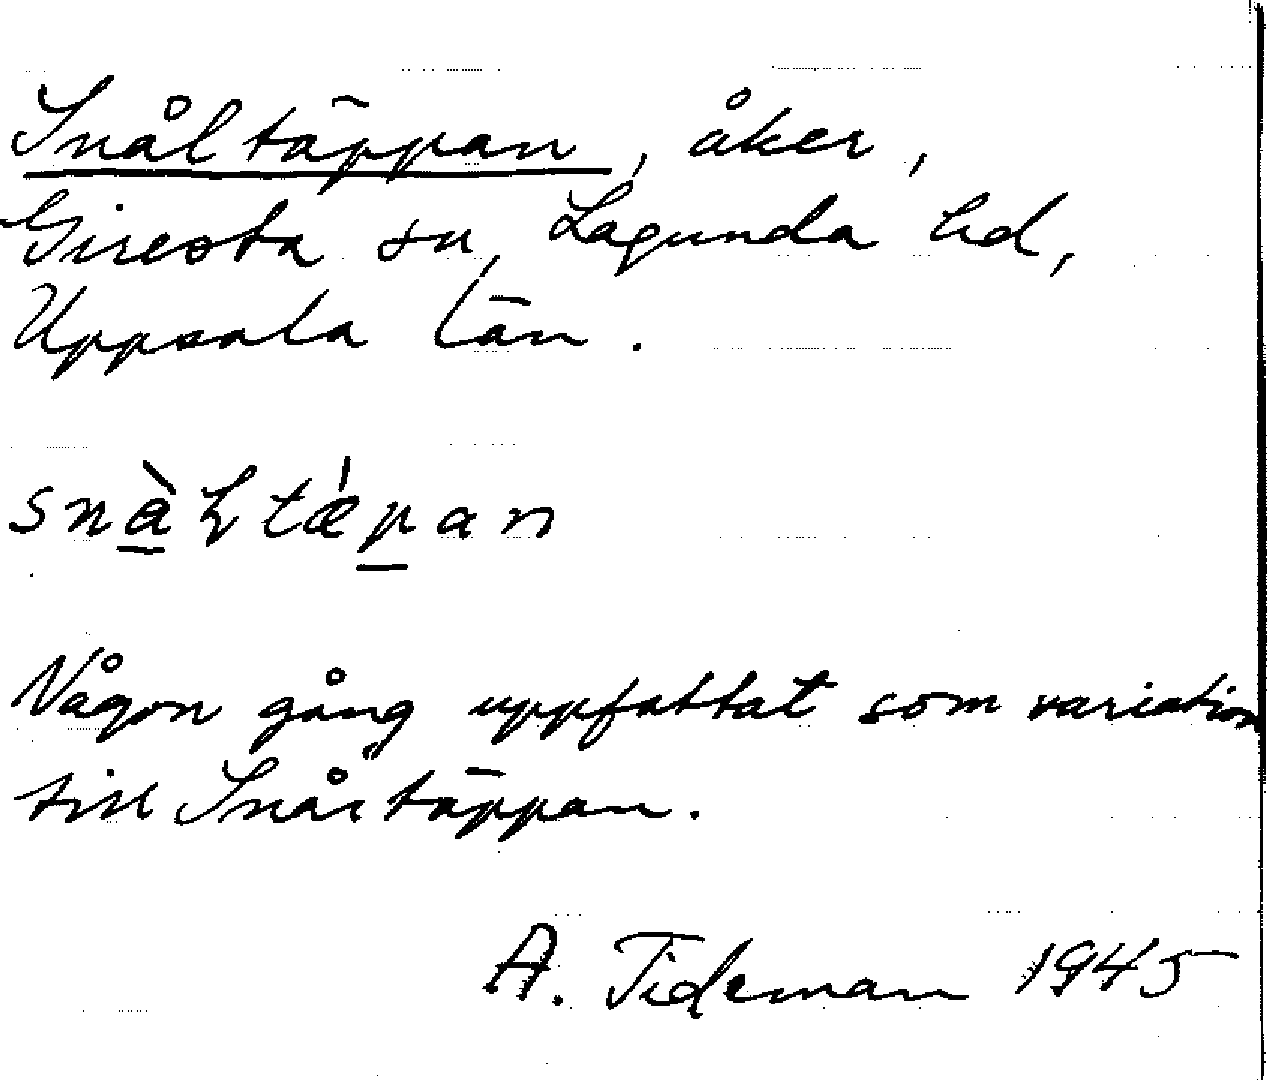 Snåltäppan, åker,
Giresta sn, Lagunda hd,
Uppsala län.
snàꞎtǽpan
Någon gång uppfattat som variation
till Snårtäppan.
A. Tideman 1945